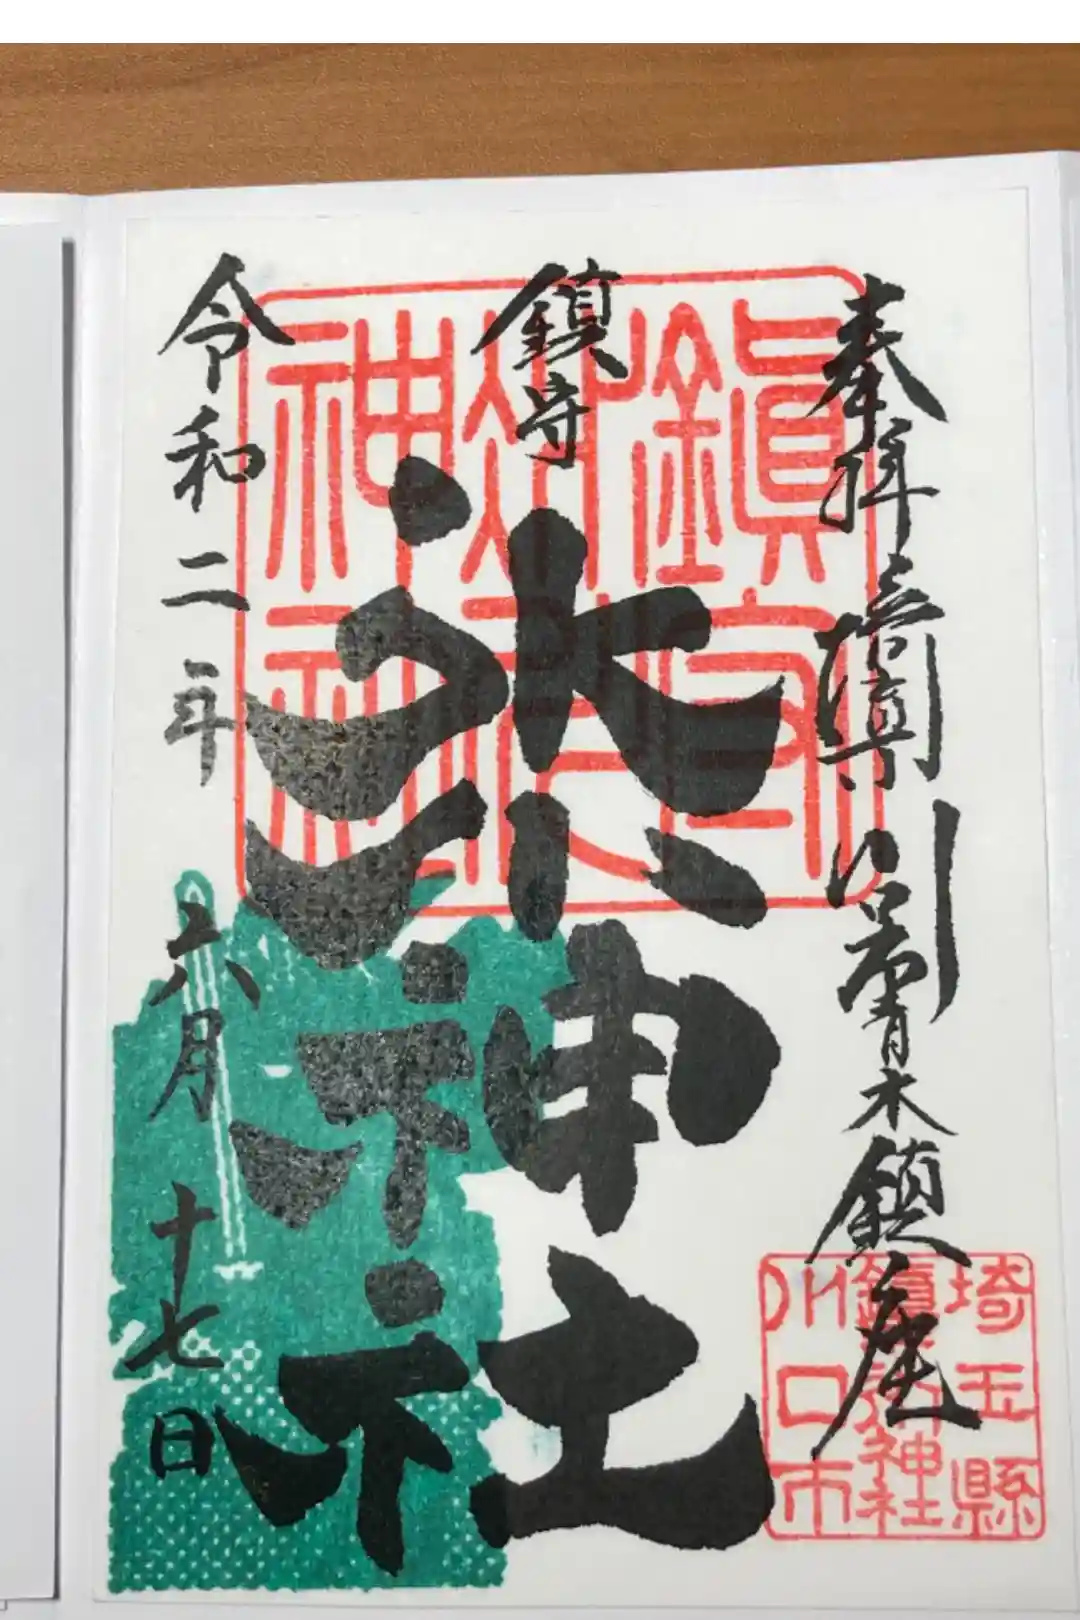 奉拝
鎮座
鎮守
氷川神社
令和二年 六月 十七日
鎮守
氷川
神社
埼玉縣
鎮守氷川神社
川口市